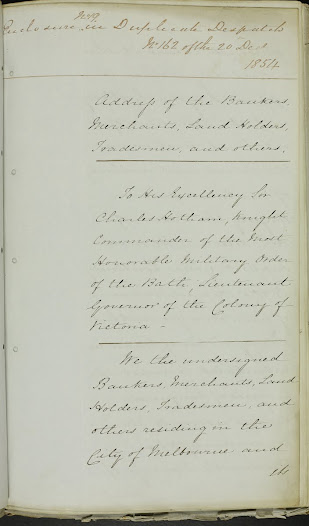 No 9
Enclosure in Duplicate Despatch
No 162 of the 20 Decr
1854
Address of the Bankers,
Merchants, Land Holders,
Tradesmen, and others,
To His Excellency Sir
Charles Hotham, Knight
Commander of the Most
Honorable Military Order
of the Bath, Lieutenant
Governor of the Colony of
Victoria -
We the undersigned
Bankers, Merchants, Land
Holders, Tradesmen, and
others residing in the
City of Melbourne and